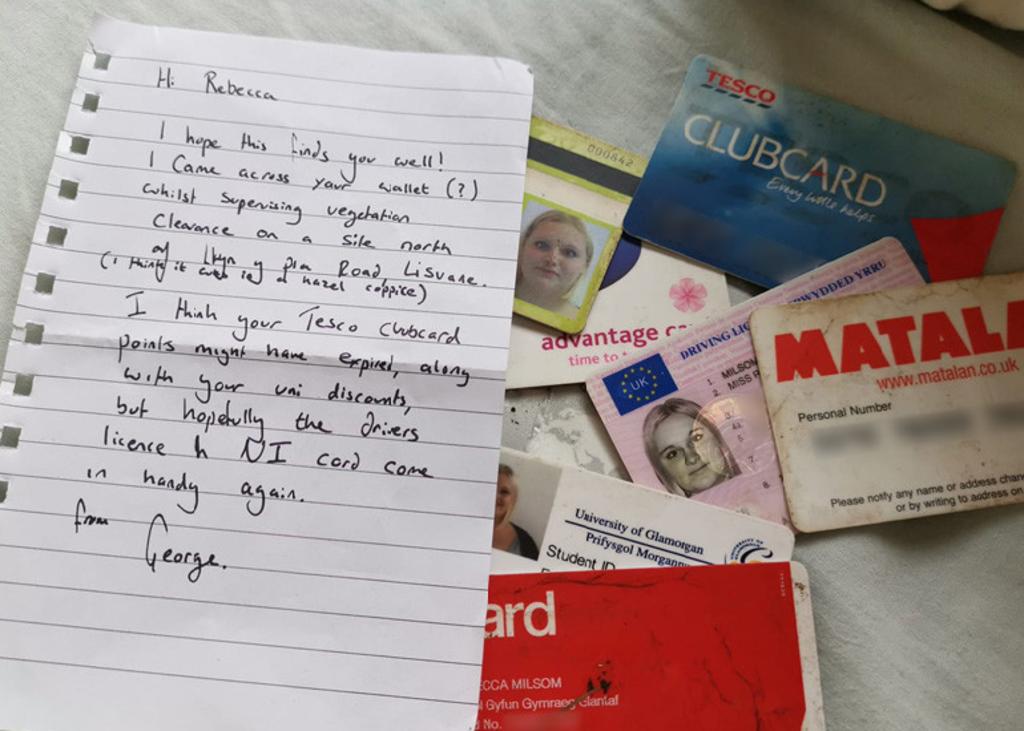 Hi Rebecca
I hope this finds you well!
I came across your wallet (?)
whilst supervising vegetation
clearance on a site north
of Llwyn y pia Road Lisvane.
(I think it was in a hazel coppice)
I think your Tesco clubcard
points might have expired, along
with your uni discounts,
but hopefully the drivers
licence & NI card come
in handy again.
from
George.
000842
advantage ca
time to
TESCO
CLUBCARD
Every little helps
DRIVING LIC
RWYDDED YRRU
UK
1. MILSOM
2. MISS R
3.
4a
5.
7.
8
MATALA
www.matalan.co.uk
Personal Number
Please notify any name or address chan
or by writing to address on
University of Glamorgan
Prifysgol Morgann
Student ID
ard
ECCA MILSOM
l Gyfun Gymraeg Glantaf
No.